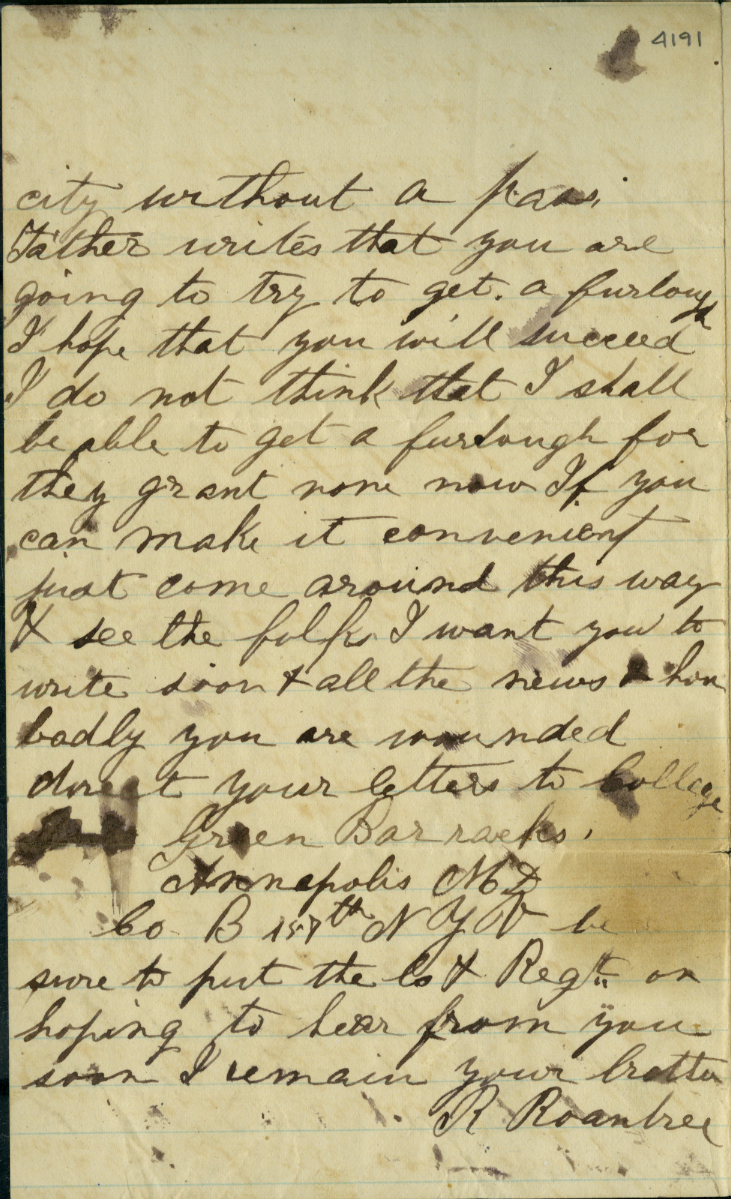 4191
city without a pass.
Father writes that you are
going to try to get. a furlough
I hope that you will succeed
I do not think that I shall
be able to get a furlough for
they grant none now If you
can make it convenient
just come around this way
& see the folks I want you to
write soon & all the news & how
badly you are wounded
direct your letters to College
Green Barracks.
Annapolis MD
Co B th N Y V be
sure to put the Co & Regt. on
hoping to hear from you
soon I remain your brother
R Roantree